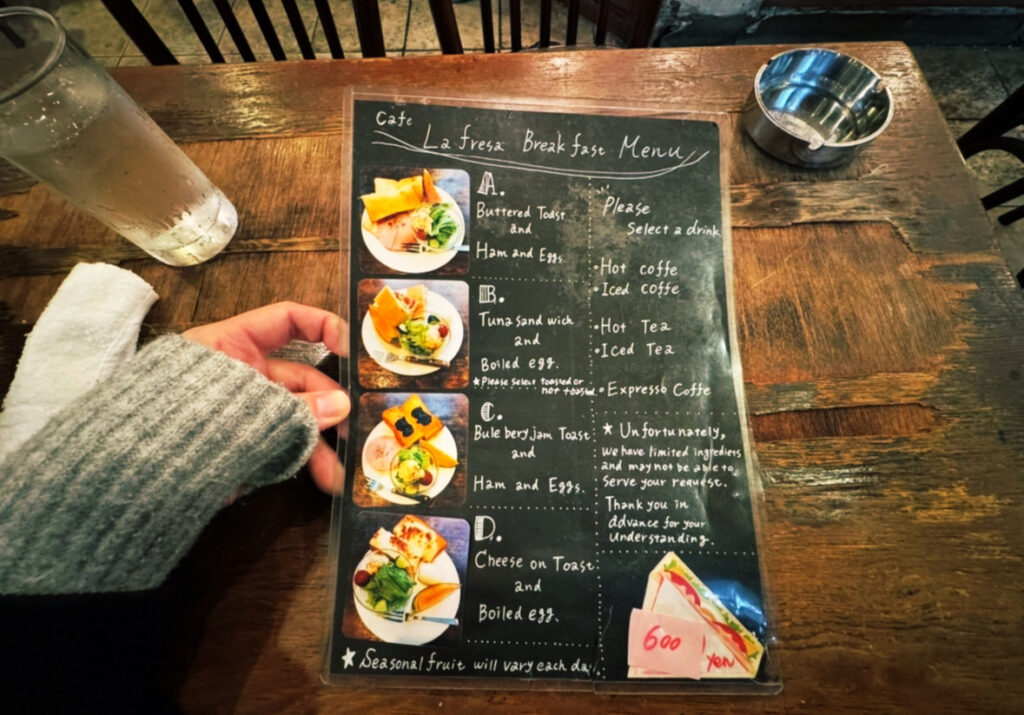 Cafe
La fresa Breakfast Menu
A.
Buttered Toast
and
Ham and Eggs.
B.
Tuna sandwich
and
Boiled egg.
★Please select toasted or
not toasted.
C.
Bule bery jam Toast
and
Ham and Eggs.
D.
Cheese on Toast
and
Boiled egg.
★Seasonal fruit will vary each day.
Please
Select a drink
•Hot coffe
•Iced coffe
•Hot Tea
•Iced Tea
•Expresso Coffe
★ Unfortunately,
we have limited ingrediets
and may not be able to
serve your request.
Thank you in
ddvance for your
understanding.
600
yen